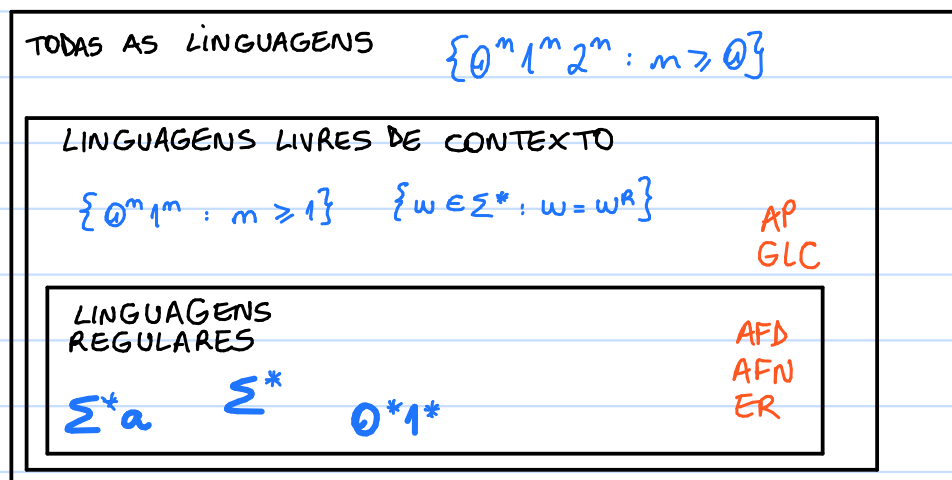 TODAS AS LINGUAGENS {0ⁿ1ⁿ2ⁿ : n ⩾ 0}
LINGUAGENS LIVRES DE CONTEXTO
{0ⁿ1ⁿ : n ⩾ 1} {w ∈ Σ* : w = wᴿ}
AP
GLC
LINGUAGENS
REGULARES
AFD
AFN
ER
Σ*a Σ* 0*1*